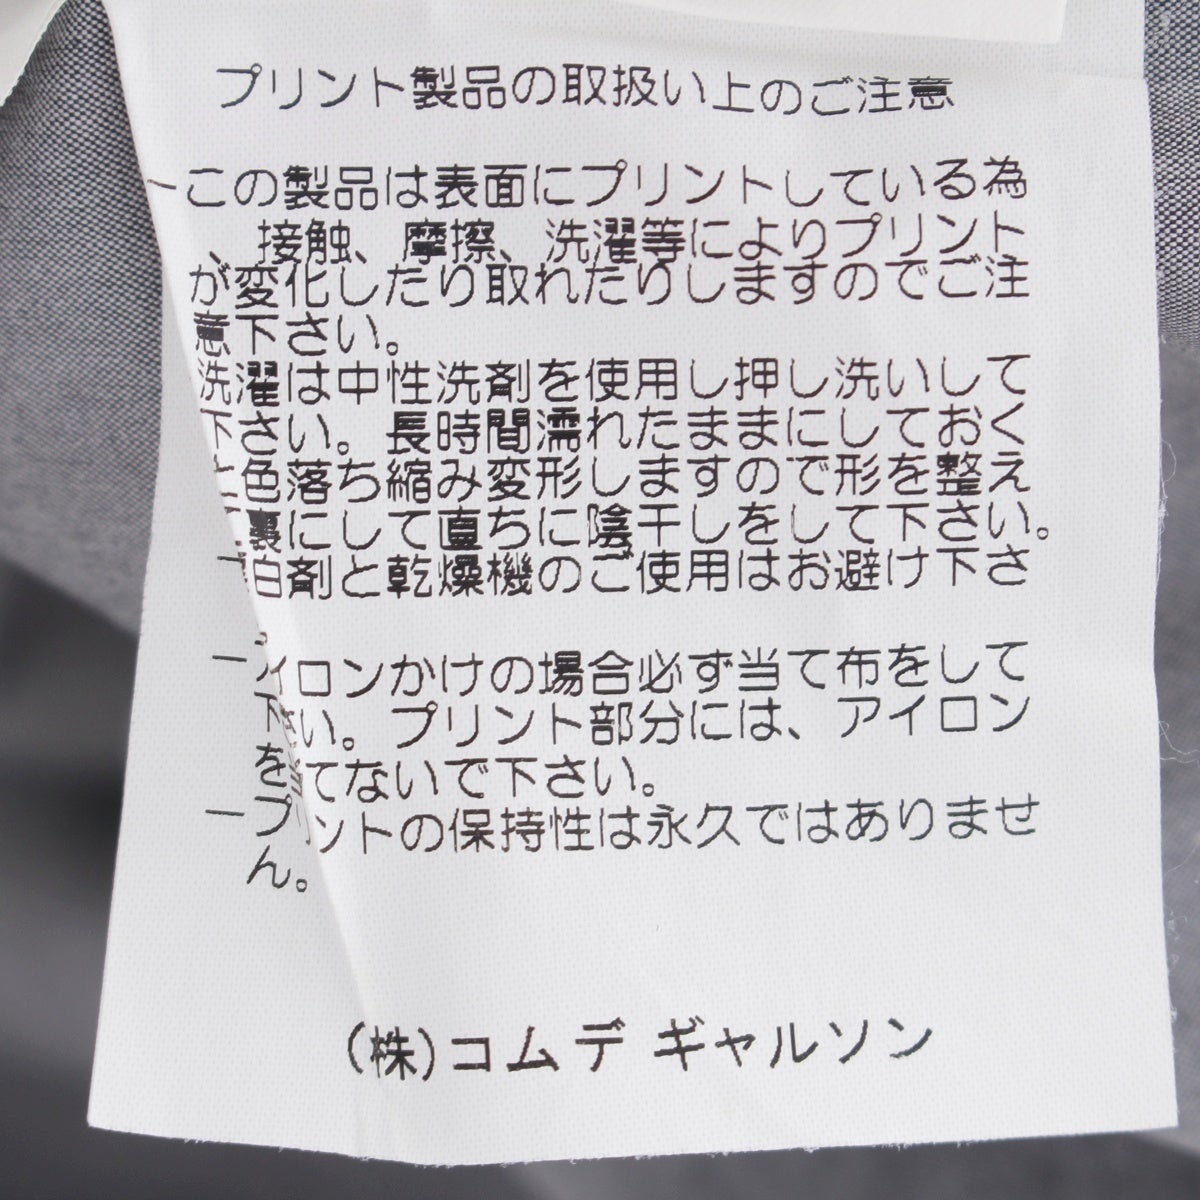 プリント製品の取扱い上のご注意
ーこの製品は表面にプリントしている為
、接触、摩擦、洗濯等によりプリント
が変化したり取れたりしますのでご注
意下さい。
洗濯は中性洗剤を使用し押し洗いして
下さい。長時間濡れたままにしておく
と色落ち縮み変形しますので形を整え
裏にして直ちに陰干しをして下さい。
白剤と乾燥機のご使用はお避け下さ
。
ーアイロンかけの場合必ず当て布をして
下さい。プリント部分には、アイロン
を てないで下さい。
ープリントの保持性は永久ではありませ
ん。
(株)コム デ ギャルソン